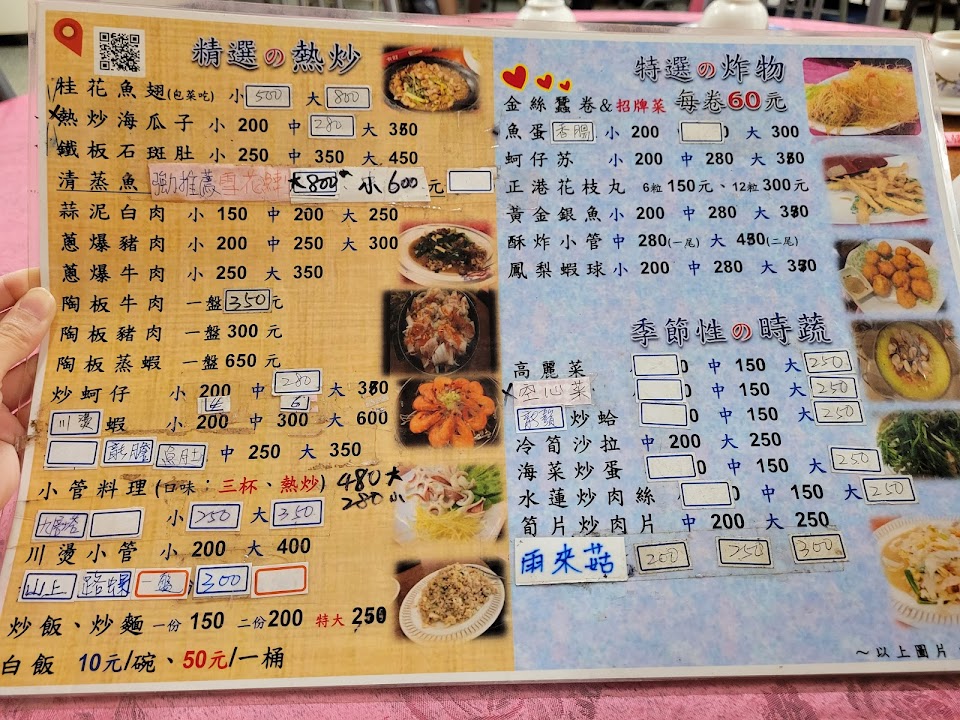 精選の熱炒
桂花魚翅(包菜吃) 小 500 大 800
熱炒海瓜子 小 200 中 280 大 350
鐵板石斑肚 小 250 中 350 大 450
清蒸魚 強推薦 雪花 大800 小600元
蒜泥白肉 小 150 中 200 大 250
蔥爆豬肉 小 200 中 250 大 300
蔥爆牛肉 小 250 大 350
陶板牛肉 一盤350元
陶板豬肉 一盤300元
陶板蒸蝦 一盤650元
炒蚵仔 小 200 中 280 大
川燙蝦 小 200 中 300 大 600
中 250 大 350
小管料理(口味：三杯、熱炒) 480大
280小
九層塔 小 250 大 350
川燙小管 小 200 大 400
山上 路螺 一盤 300
炒飯、炒麵 一份 150 二份200 特大 250
白飯 10元/碗、50元/一桶
特選の炸物
金絲蠶卷&招牌菜 每卷60元
魚蛋香腸 小 200 大 300
蚵仔苏 小 200 中 280 大
正港花枝丸 6粒150元、12粒300元
黃金銀魚 小 200 中 280 大
酥炸小管 中 280(一尾) 大 450(二尾)
鳳梨蝦球 小 200 中 280 大
季節性の時蔬
高麗菜 中 150 大 250
空心菜 中 150 大 250
炒蛤 中 150 大 250
冷筍沙拉 中 200 大 250
海菜炒蛋 中 150 大 250
水蓮炒肉絲 中 150 大 250
筍片炒肉片 中 200 大 250
雨來菇 200 250 300
～以上圖片